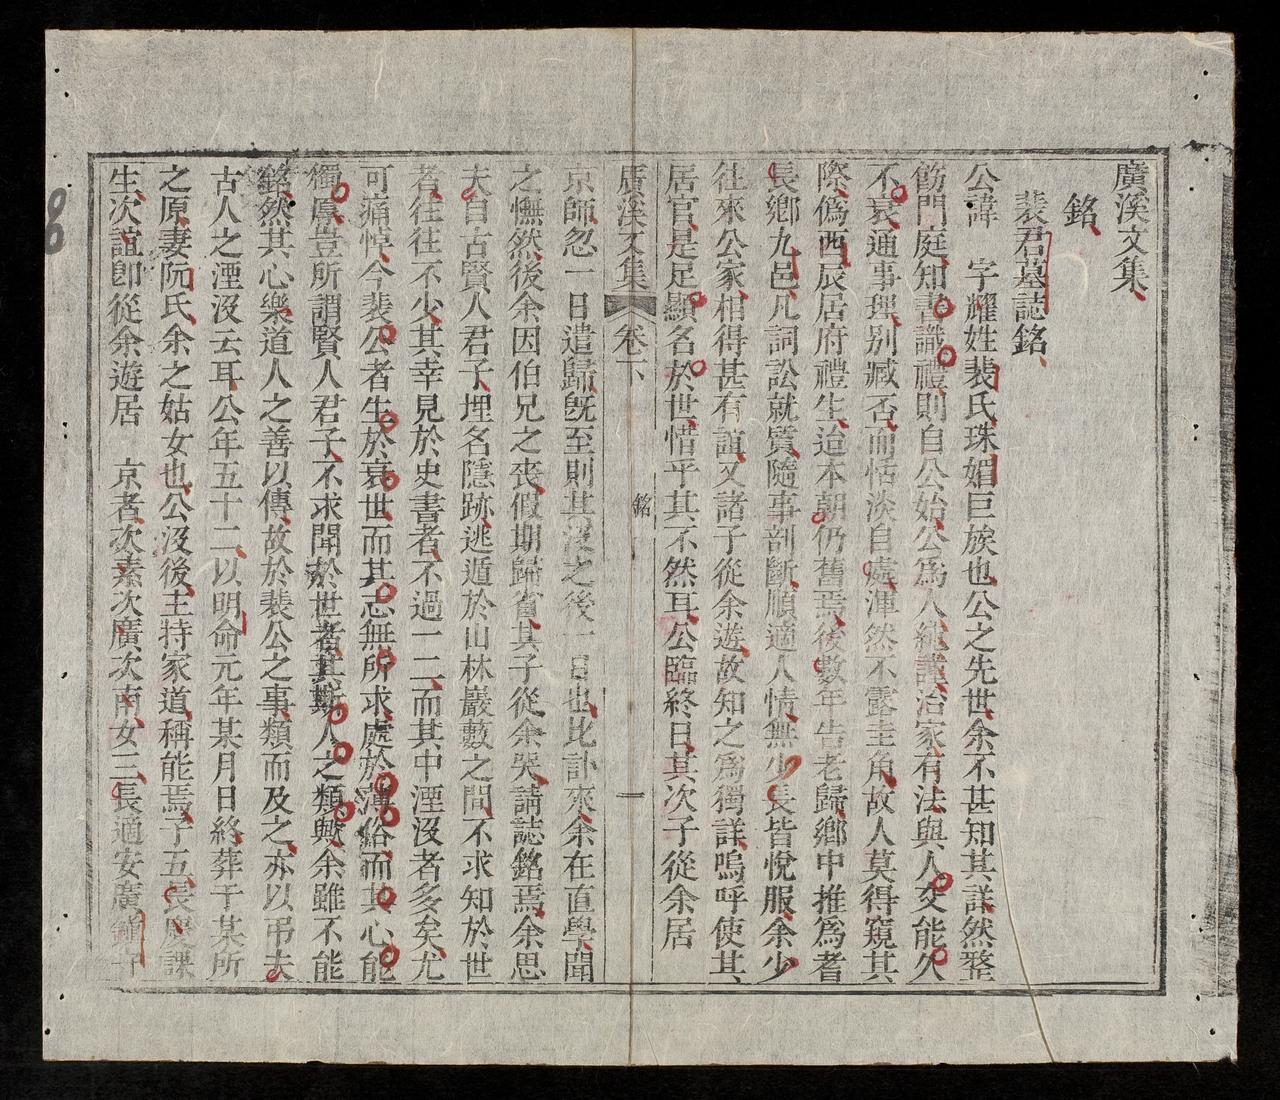 廣溪文集
銘
裴君墓誌銘
公諱　字耀姓裴氏珠媚巨族也公之先世余不甚知其詳然整
飭門庭知書識禮則自公始公爲人純謹治家有法與人交能久
不衰通事理别臧否而恬淡自處渾然不露圭角故人莫得窺其
際僞西辰居府禮生迨本朝仍舊焉後數年告老歸鄉中推爲耆
長鄉九邑凡詞訟就質隨事剖斷順適人情無少長皆悅服余少
往來公家相得甚有誼又諸子從余遊故知之爲獨詳嗚呼使其
居官是足顯名於世惜乎其不然耳公臨終日其次子從余居
廣溪文集　卷下　銘　一
京師忽一日遣歸旣至則其沒之後一日也比訃來余在直學聞
之憮然後余因伯兄之喪假期歸省其子從余哭請誌銘焉余思
夫自古賢人君子埋名隱跡逃遁於山林巖藪之間不求知於世
者往往不少其幸見於史書者不過一二而其中湮沒者多矣尤
可痛悼今裴公者生於衰世而其志無所求處於薄俗而其心能
獨厚豈所謂賢人君子不求聞於世者其斯人之類歟余雖不能
銘然其心樂道人之善以傳故於裴公之事類而及之亦以弔夫
古人之湮沒云耳公年五十二以明命元年某月日終葬于某所
之原妻阮氏余之姑女也公沒後主持家道稱能焉子五長慶課
生次誼卽從余遊居　京者次素次廣次南女三長適安廣鍾